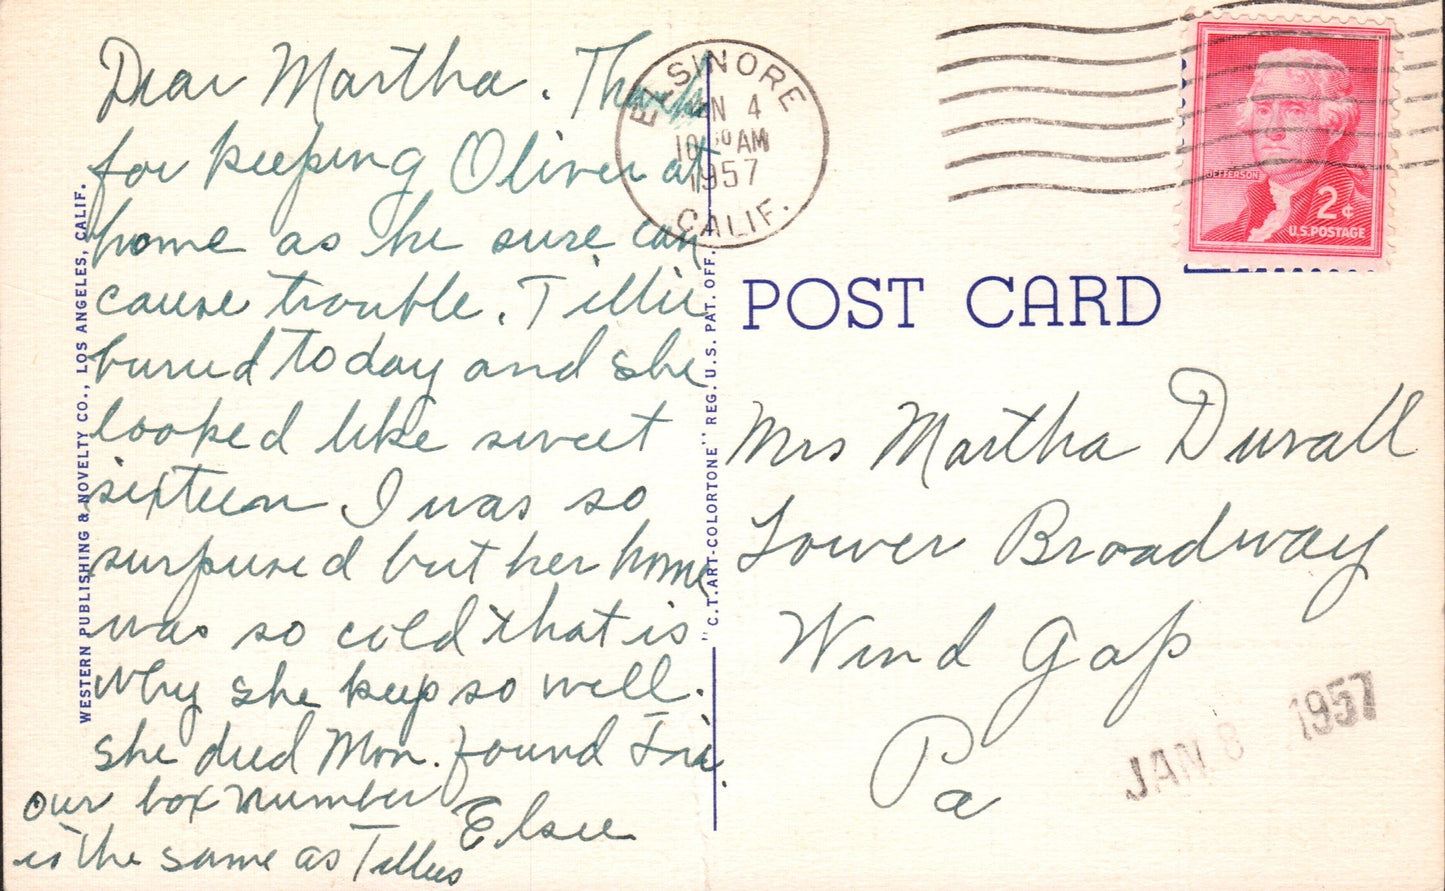 Dear Martha. Thanks
for keeping Oliver at
home as he sure can
cause trouble. Tillie
buried today and she
looked like sweet
sixteen I was so
surprised but her home
was so cold that is
why she keep so well.
she died Mon. found Fri.
Elsie
our box number
is the same as Tillies
WESTERN PUBLISHING & NOVELTY CO., LOS ANGELES, CALIF.
"C.T. ART-COLORTONE" REG. U.S. PAT. OFF.
ELSINORE
JAN 4
AM
1957
CALIF.
JEFFERSON
2¢
U.S. POSTAGE
POST CARD
Mrs Martha Duvall
Lower Broadway
Wind Gap
Pa
JAN 8 1957